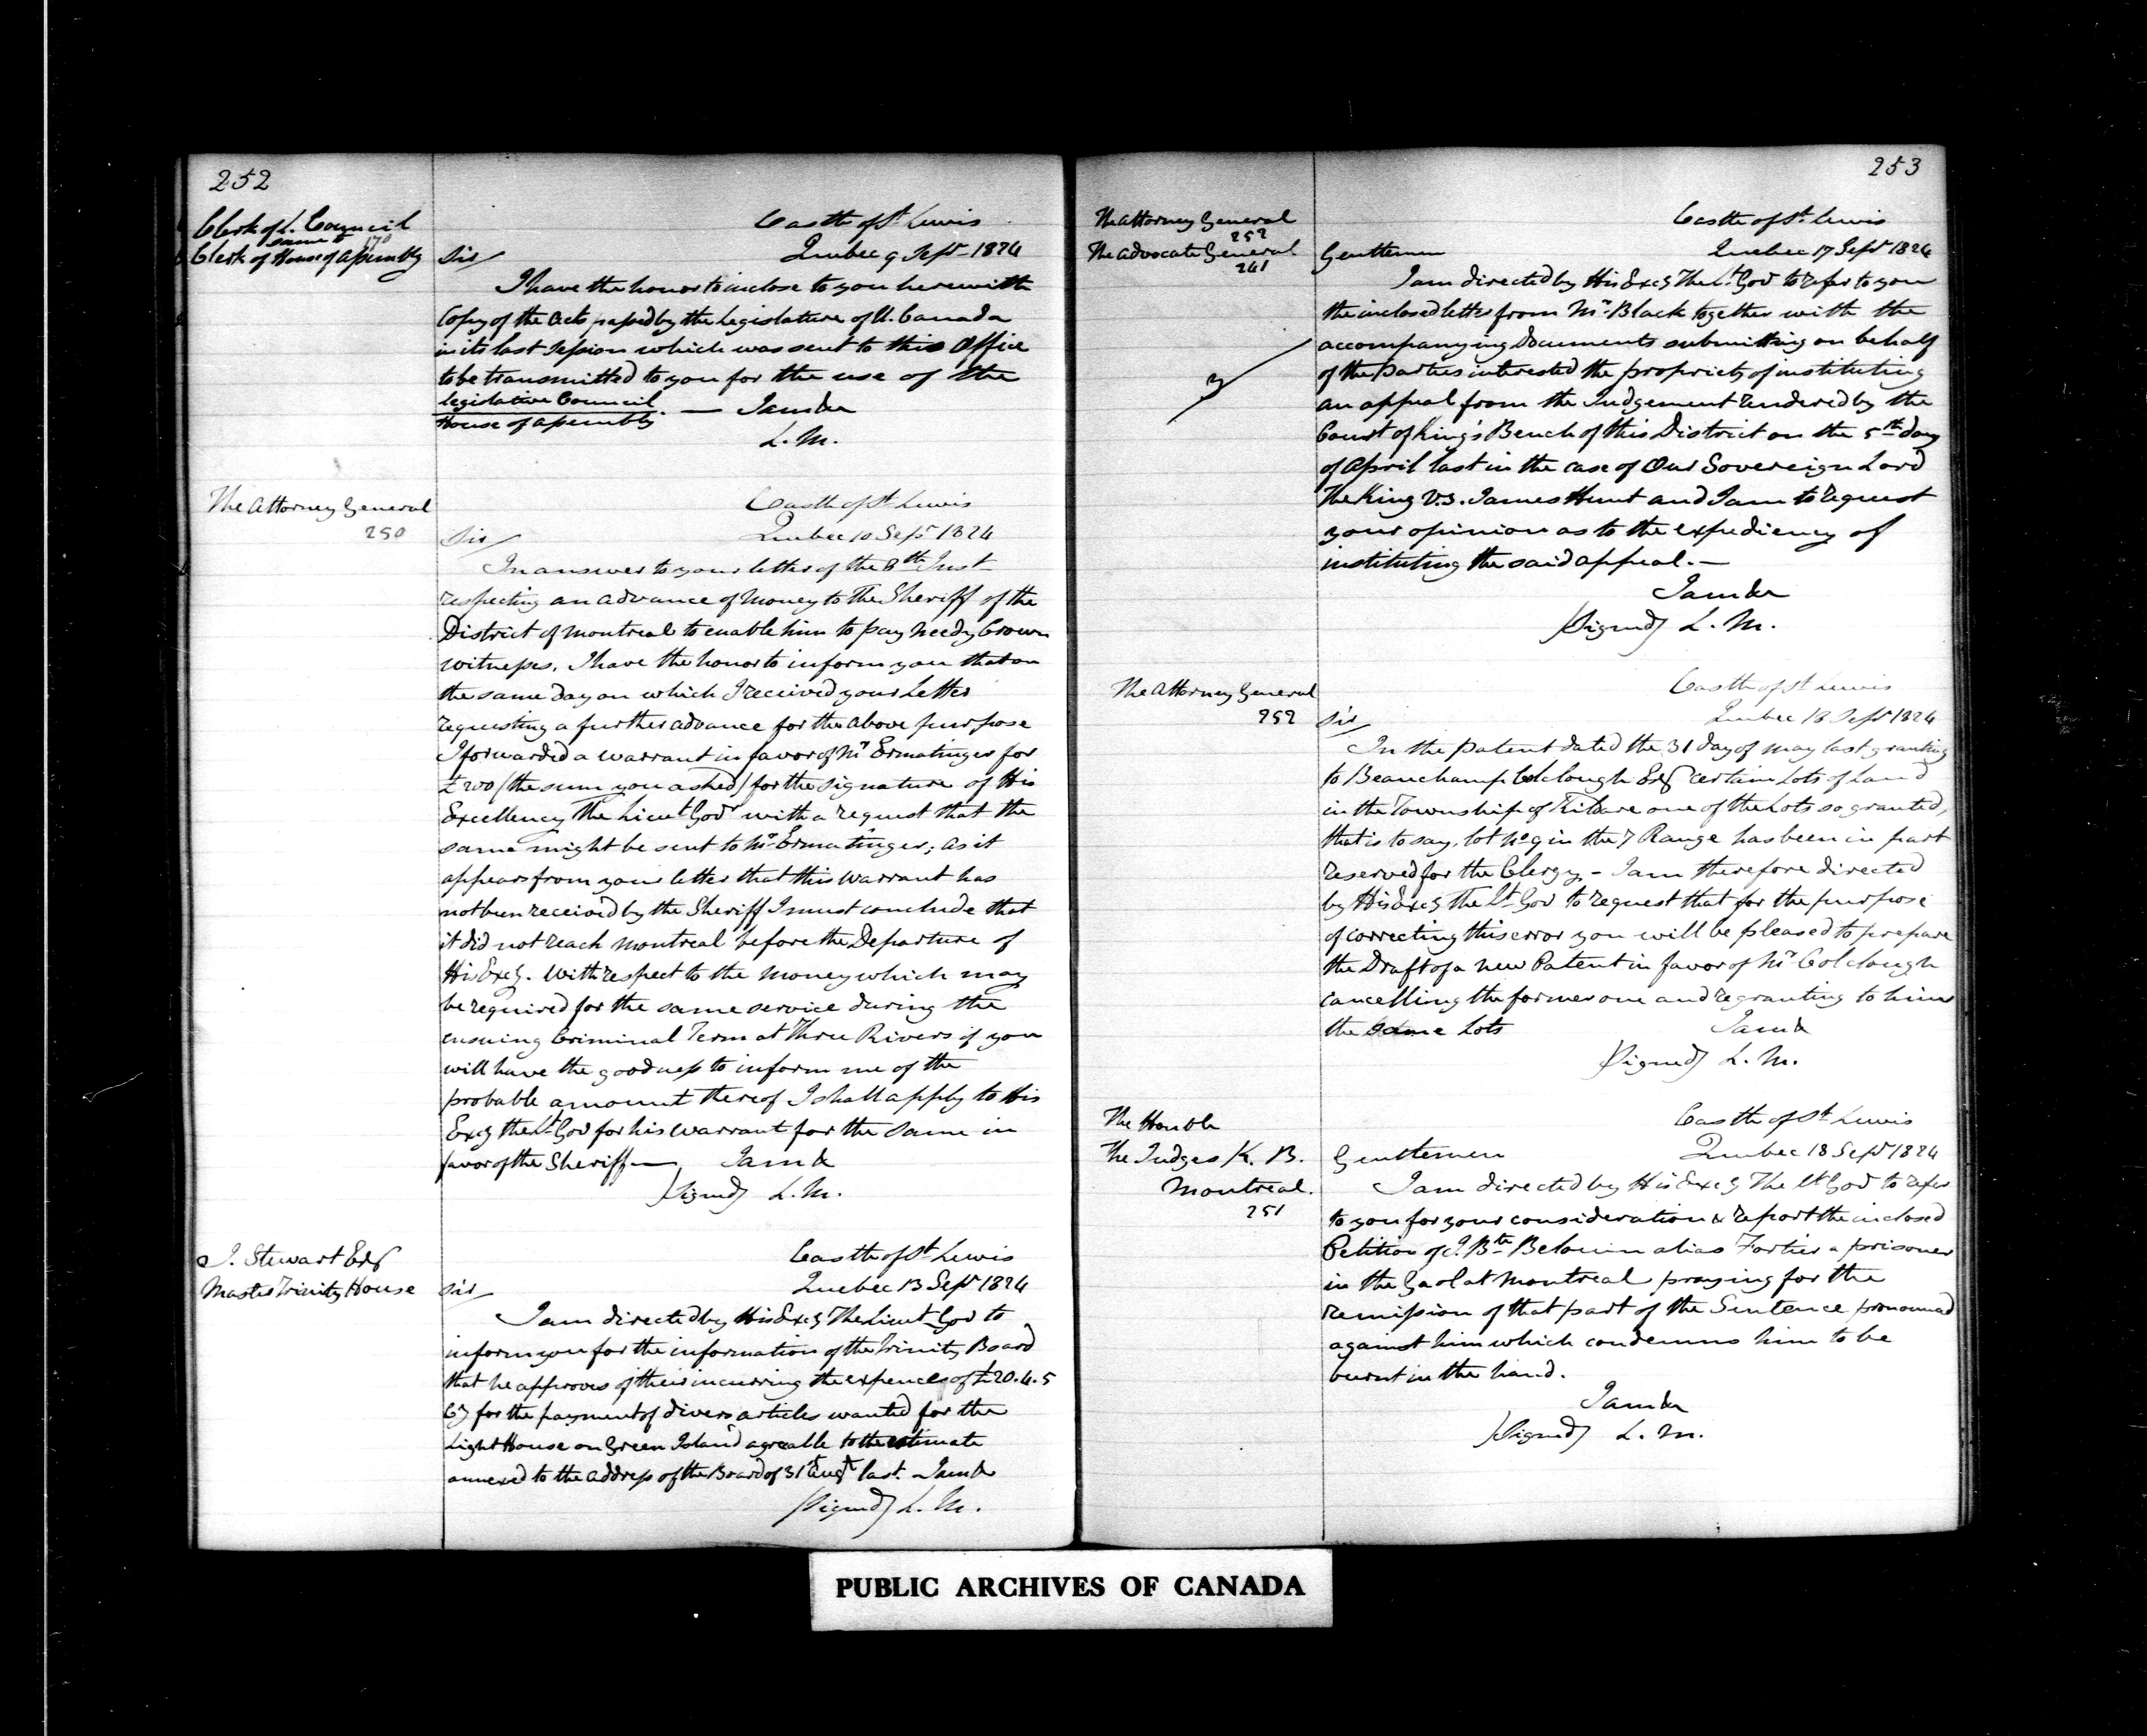 252
Clerk of L. Council
same to 170
Clerk of House of Assembly
Castle of St. Lewis
Quebec 9 Sept 1824
Sir/
I have the honor to inclose to you herewith
Copy of the Acts passed by the Legislature of U. Canada
in its last Session which was sent to this Office
to be transmitted to you for the use of the
legislative Council
House of Assembly. — I am &c
L. M.
The Attorney General
250
Castle of St Lewis
Quebec 10 Sept 1824
Sir/
In answer to your letter of the 8th Inst
respecting an advance of Money to the Sheriff of the
District of Montreal to enable him to pay needy Crown
witnesses, I have the honor to inform you that on
the same day on which I received your Letter
requesting a further advance for the above purpose
I forwarded a warrant in favor of Mr Ermatinger for
£200 (the sum you asked) for the signature of His
Excellency The Lieut Govr with a request that the
same might be sent to Mr Ermatinger; as it
appears from your letter that this warrant has
not been received by the Sheriff I must conclude that
it did not reach Montreal before the Departure of
His Excy. With respect to the money which may
be required for the same service during the
ensuing Criminal Term at Three Rivers if you
will have the goodness to inform me of the
probable amount thereof I shall apply to His
Excy the Lt Gov for his warrant for the same in
favor of the Sheriff — I am &
(Signed) L. M.
J. Stewart Esq
Master Trinity House
Castle of St Lewis
Quebec 13 Sept 1824
Sir/
I am directed by His Excy The Lieut Gov to
inform you for the information of the Trinity Board
that he approves of their incurring the expence of £20.4.5
Cy for the payment of divers articles wanted for the
Light House on Green Island agreable to the estimate
annexed to the address of the Board of 31st Augt last. — I am &
(Signed) L. M.
253
The Attorney General
252
The Advocate General
241
Castle of St. Lewis
Quebec 17 Sept 1824
Gentlemen
I am directed by His Excy The Lt Gov to refer to you
the inclosed letter from Mr Black together with the
accompanying Documents submitting on behalf
of the Parties interested the propriety of instituting
an appeal from the Judgement rendered by the
Court of King's Bench of this District on the 5th day
of April last in the case of Our Sovereign Lord
The King v.s. James Hunt and I am to request
your opinion as to the expediency of
instituting the said appeal. —
I am &c
(Signed) L. M.
The Attorney General
252
Castle of St Lewis
Quebec 18 Sept 1824
Sir/
In the patent dated the 31 day of May last granting
to Beauchamp Colclough Esq certain Lots of Land
in the Township of Kildare one of the Lots so granted,
that is to say, lot No 9 in the 7 Range has been in part
reserved for the Clergy — I am therefore directed
by His Excy the Lt Gov to request that for the purpose
of correcting this error you will be pleased to prepare
the Draft of a new Patent in favor of Mr Colclough
cancelling the former one and regranting to him
the same Lots I am &
(Signed) L. M.
The Honble
The Judges K. B.
Montreal.
251
Castle of St Lewis
Quebec 18 Sept 1824
Gentlemen
I am directed by His Excy The Lt Gov to refer
to you for your consideration & report the inclosed
Petition of J. Bte Belouin alias Fortier a prisoner
in the Gaol at Montreal praying for the
remission of that part of the Sentence pronounced
against him which condemns him to be
burnt in the hand.
I am &c
(Signed) L. M.
PUBLIC ARCHIVES OF CANADA